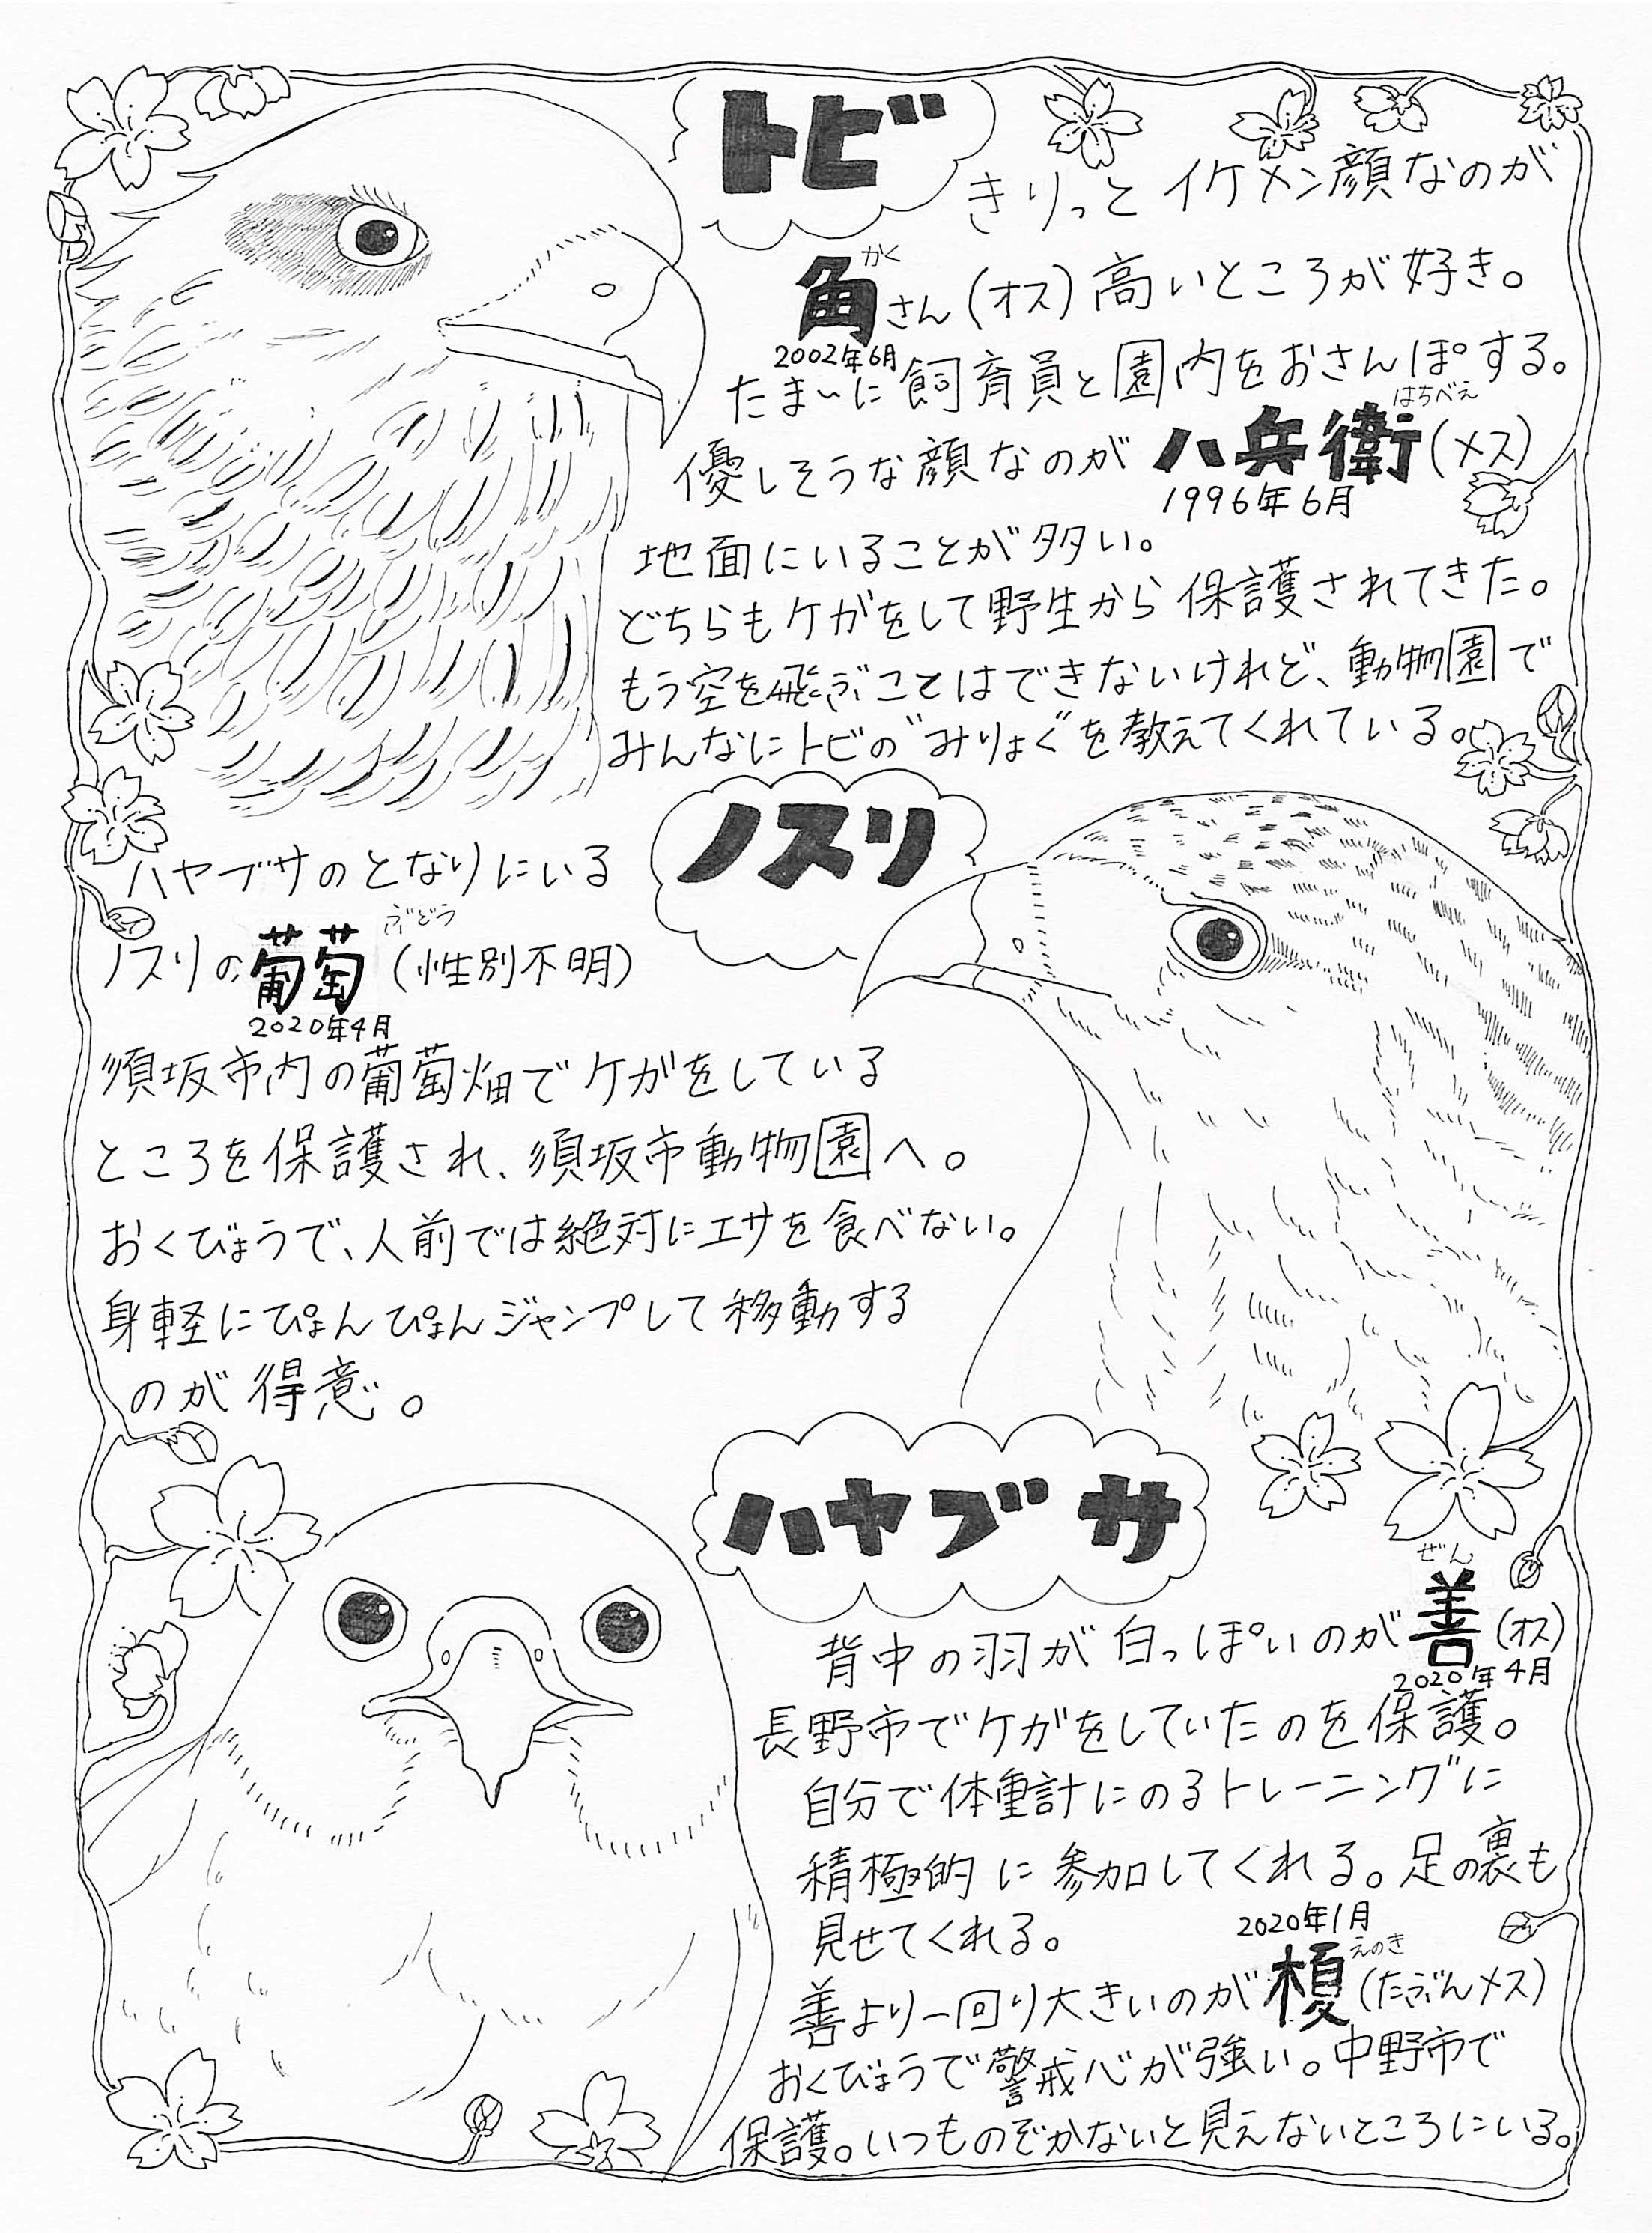 トビ
きりっと イケメン顔なのが
かく
角さん(オス)高いところが好き。
2002年6月
たま〜に飼育員と園内をおさんぽする。
はちべえ
優しそうな顔なのが 八兵衛(メス)
1996年6月
地面にいることが多い。
どちらもケガをして野生から保護されてきた。
もう空を飛ぶことはできないけれど、動物園で
みんなにトビの“みりょく”を教えてくれている。
ノスリ
ハヤブサのとなりにいる
ぶどう
ノスリの葡萄(性別不明)
2020年4月
須坂市内の葡萄畑でケガをしている
ところを保護され、須坂市動物園へ。
おくびょうで、人前では絶対にエサを食べない。
身軽にぴょんぴょんジャンプして移動する
のが得意。
ハヤブサ
ぜん
背中の羽が白っぽいのが善(オス)
2020年4月
長野市でケガをしていたのを保護。
自分で体重計にのるトレーニングに
積極的に参加してくれる。足の裏も
見せてくれる。
2020年1月
えのき
善より一回り大きいのが榎(たぶんメス)
おくびょうで警戒心が強い。中野市で
保護。いつものぞかないと見えないところにいる。